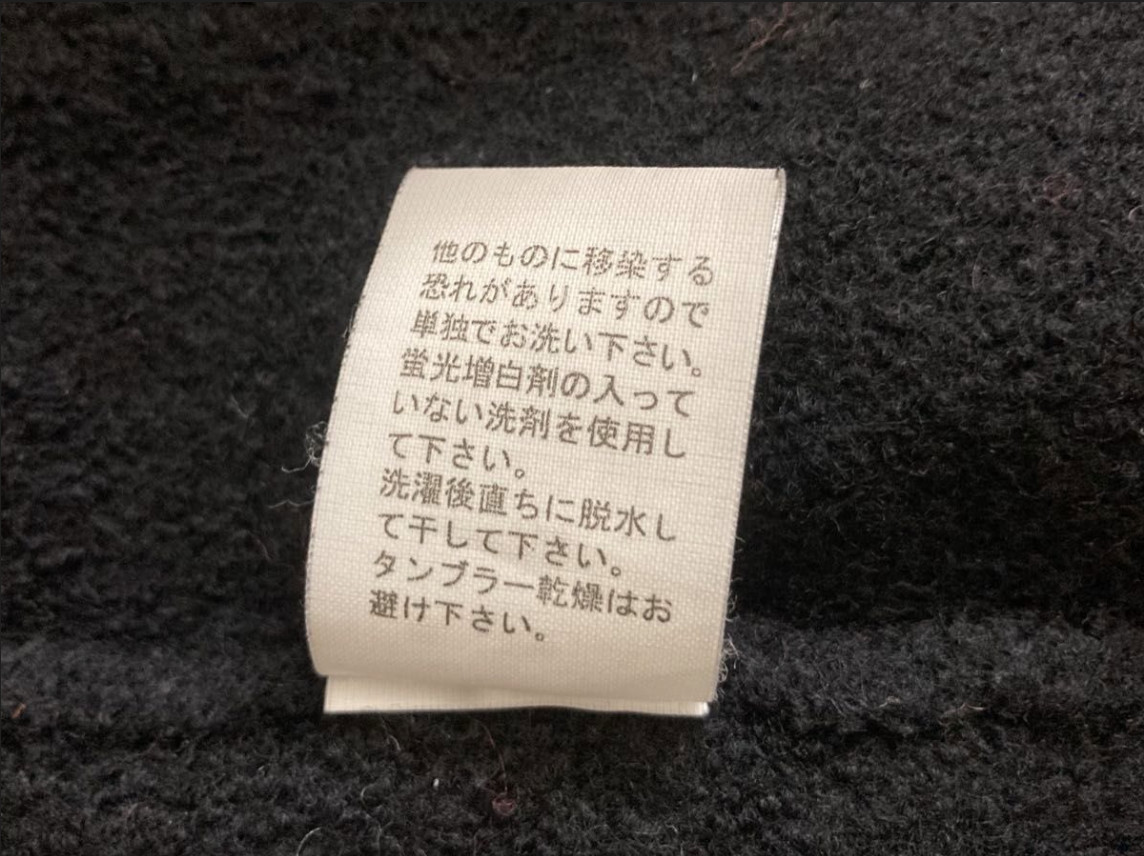 他のものに移染する
恐れがありますので
単独でお洗い下さい。
蛍光増白剤の入って
いない洗剤を使用し
て下さい。
洗濯後直ちに脱水し
て干して下さい。
タンブラー乾燥はお
避け下さい。